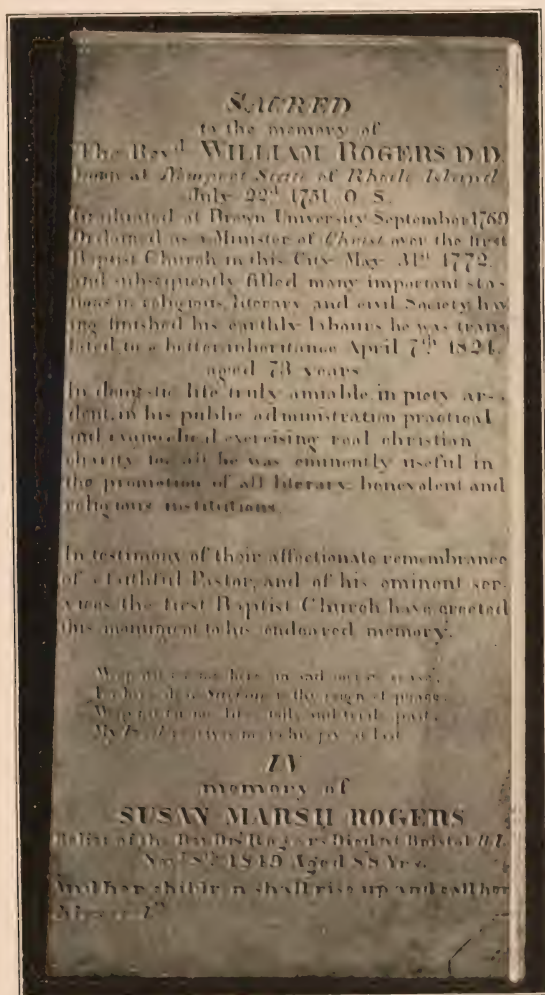 SACRED
to the memory of
The Revd. WILLIAM ROGERS D.D.
born at Newport State of Rhode Island
July 22d. 1751. O. S.
Graduated at Brown University September 1769
Ordained as a Minister of Christ over the first
Baptist Church in this City May 31st. 1772.
and subsequently filled many important sta-
tions in religious, literary and civil Society, hav
ing finished his earthly labours he was trans
lated to a better inheritance April 7th. 1824.
aged 73 years
In domestic life truly amiable, in piety ar-
dent, in his public administration practical
and evangelical exercising real christian
charity for all he was eminently useful in
the promotion of all literary, benevolent and
religious institutions.
In testimony of their affectionate remembrance
of a faithful Pastor, and of his eminent ser-
vices the first Baptist Church have erected
this monument to his endeared memory.
Weep not for me
reign of peace.
Weep not for me
My
IN
memory of
SUSAN MARSH ROGERS
Relict of the Rev. Rogers Died at Bristol R.I.
1849 Aged 88 Yrs.
And her children shall rise up and call her